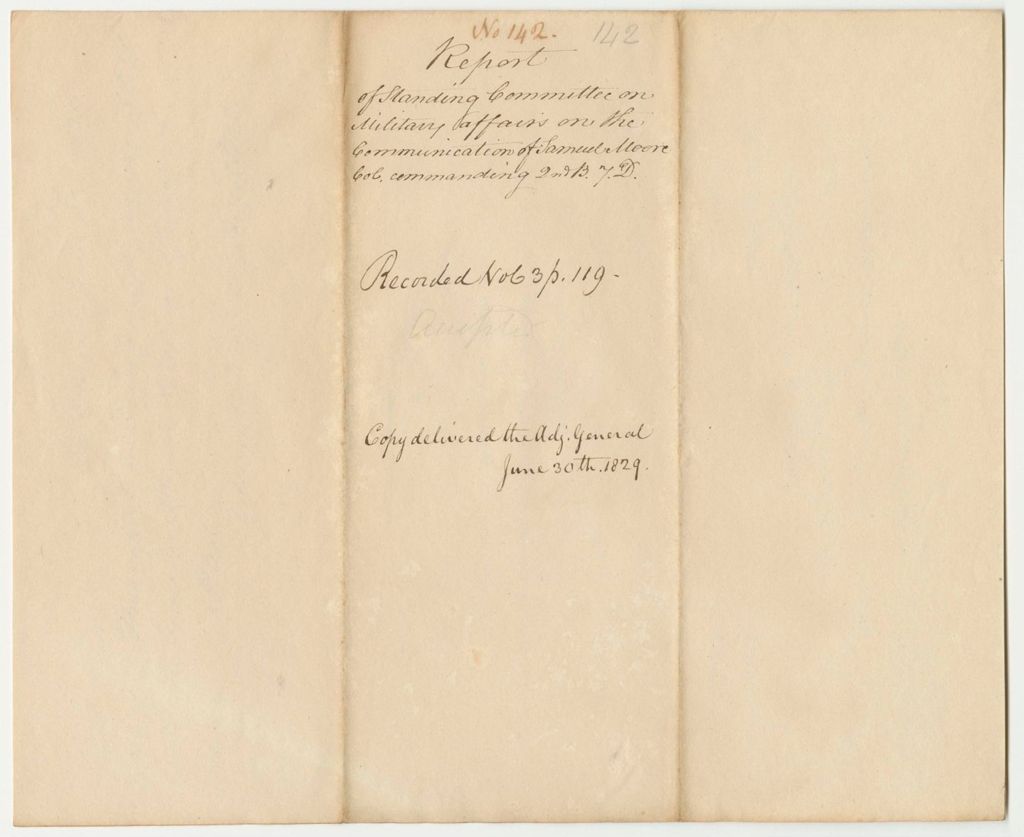 No 142. 142
Report
of Standing Committee on
Military affairs on the
Communication of Samuel Moore
Col. commanding 2nd B. 7. D.
Recorded Vol 3 p. 119.
Copy delivered the Adj. General
June 30th. 1829.